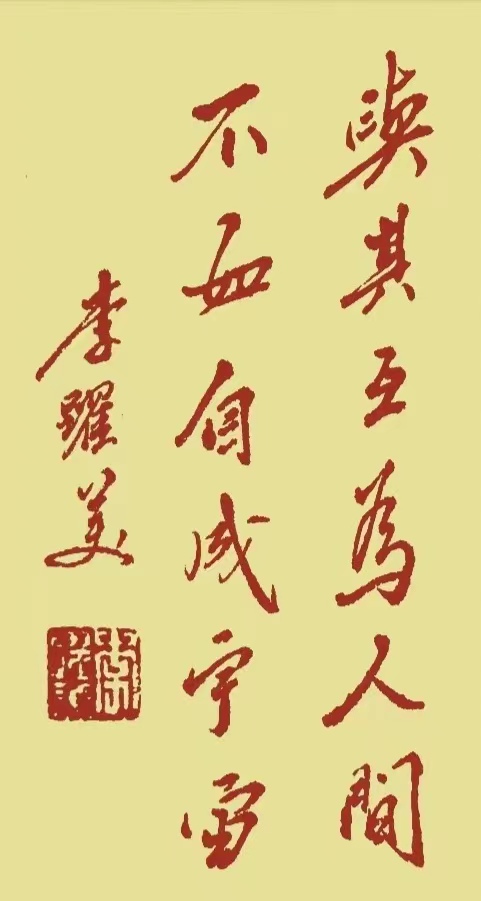 與其互為人間
不如自成宇宙
李躍美